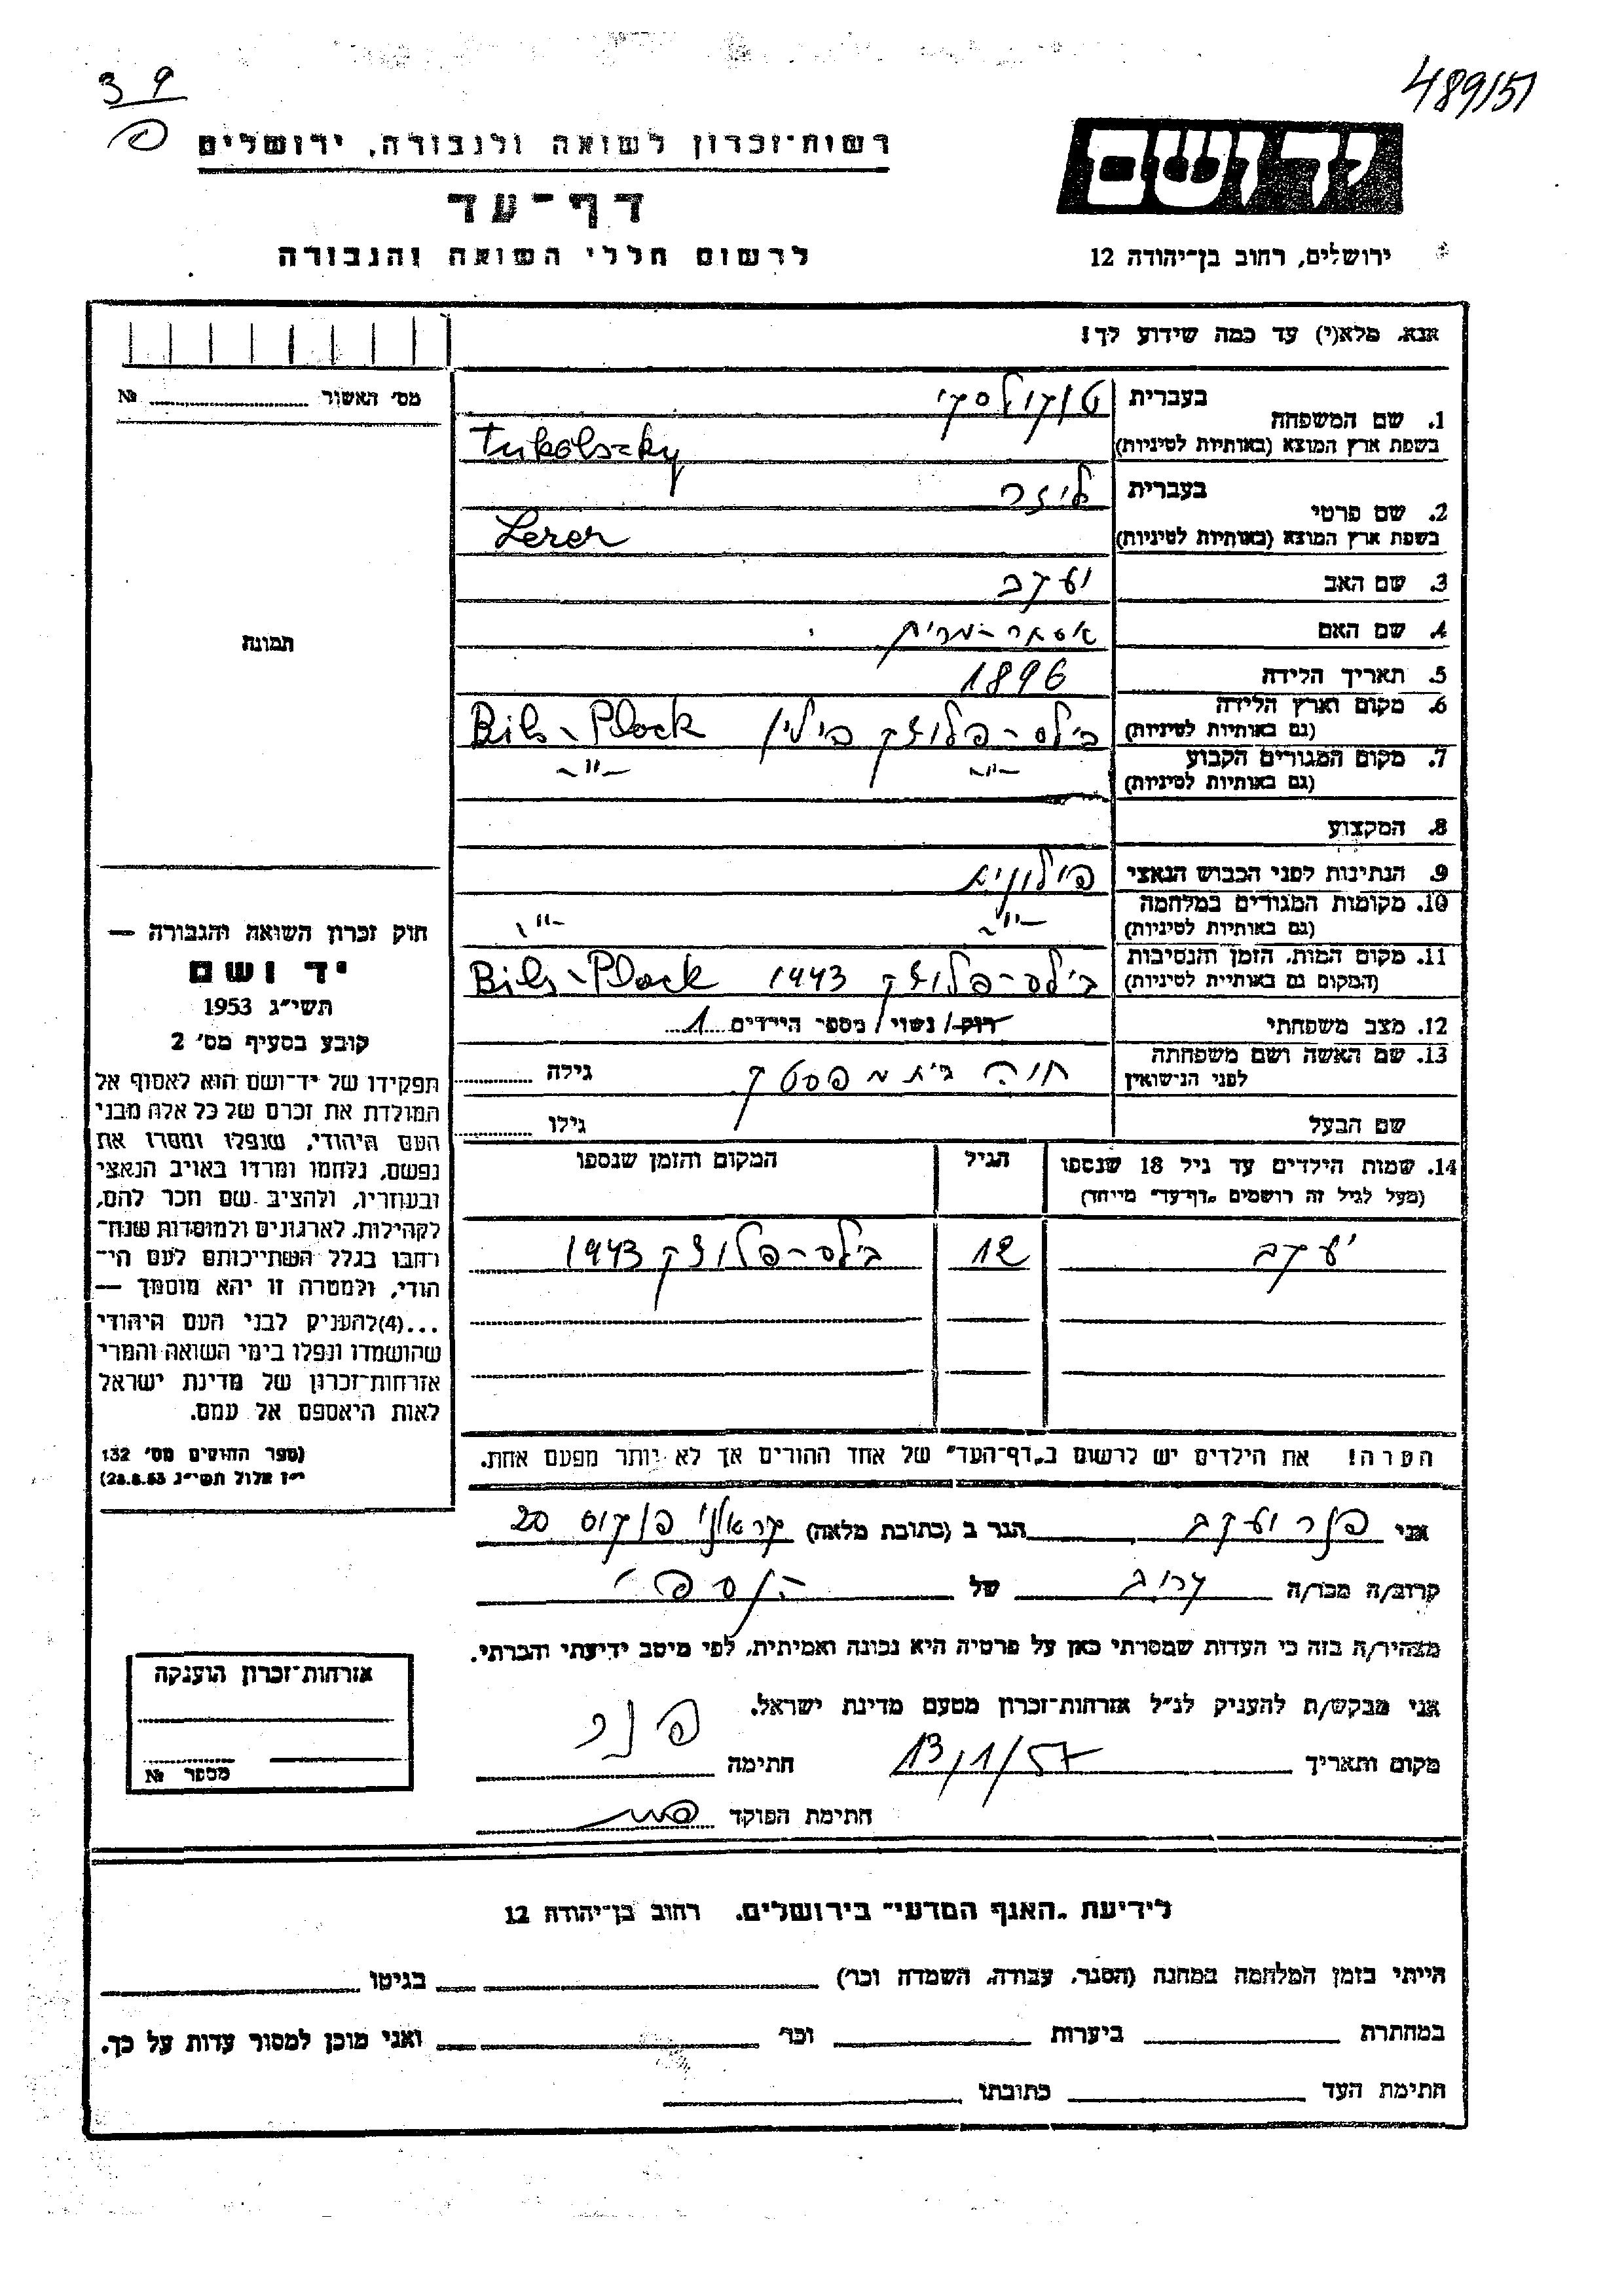 39
489/51
יד ושם
ירושלים, רחוב בן־יהודה 12
רשות־זכרון לשואה ולגבורה, ירושלים
דף־עד
לרשום חללי השואה והגבורה
אנא, מלא(י) עד כמה שידוע לך!
מס׳ האשור № 
תמונה
חוק זכרון השואה והגבורה —
יד ושם
תשי״ג 1953
קובע בסעיף מס׳ 2
תפקידו של יד־ושם הוא לאסוף אל
המולדת את זכרם של כל אלה מבני
העם היהודי, שנפלו ומסרו את
נפשם, נלחמו ומרדו באויב הנאצי
ובעוזריו, ולהציב שם וזכר להם,
לקהילות, לארגונים ולמוסדות שנח־
רבו בגלל השתייכותם לעם הי־
הודי, ולמטרה זו יהא מוסמך —
...(4)להעניק לבני העם היהודי
שהושמדו ונפלו בימי השואה והמרי
אזרחות־זכרון של מדינת ישראל
לאות היאספם אל עמם.
(ספר החוקים מס׳ 132
י״ז אלול תשי״ג 28.8.53)
1. שם המשפחה
בעברית טוקולסקי
בשפת ארץ המוצא (באותיות לטיניות) Tukolszky
2. שם פרטי
בעברית ליזר
בשפת ארץ המוצא (באותיות לטיניות) Lezer
3. שם האב יעקב
4. שם האם אסתר־
5. תאריך הלידה 1896
6. מקום וארץ הלידה
(גם באותיות לטיניות) בילס־פלוצק פולין Bils-Plock
7. מקום המגורים הקבוע
(גם באותיות לטיניות) -"- -"-
8. המקצוע
9. הנתינות לפני הכבוש הנאצי פולנית
10. מקומות המגורים במלחמה
(גם באותיות לטיניות) -"- -"-
11. מקום המות, הזמן והנסיבות
(המקום גם באותיות לטיניות) בילס־פלוצק 1943 Bils-Plock
12. מצב משפחתי רוק/ נשוי/ מספר הילדים 1
13. שם האשה ושם משפחתה
לפני הנישואין חוה גילה
שם הבעל גילו
14. שמות הילדים עד גיל 18 שנספו
(מעל לגיל זה רושמים „דף־עד״ מיוחד)
הגיל
המקום והזמן שנספו
יעקב 12 בילס־פלוצק 1943
הערה! את הילדים יש לרשום ב„דף־העד״ של אחד ההורים אך לא יותר מפעם אחת.
אני פנר יעקב הגר ב (כתובת מלאה) קראוני פנקוס 20
קרוב/ה מכר/ה קרוב של הנספה
מצהיר/ה בזה כי העדות שמסרתי כאן על פרטיה היא נכונה ואמיתית, לפי מיטב ידיעתי והכרתי.
אני מבקש/ת להעניק לנ״ל אזרחות־זכרון מטעם מדינת ישראל.
מקום ותאריך 13/1/57 חתימה פנר
חתימת הפוקד
אזרחות־זכרון הוענקה
מספר №
לידיעת „האגף המדעי״ בירושלים. רחוב בן־יהודה 12
הייתי בזמן המלחמה במחנה (הסגר, עבודה, השמדה וכו׳) בגיטו
במחתרת ביערות וכו׳ ואני מוכן למסור עדות על כך.
חתימת העד כתובתו